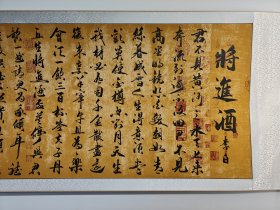 將進酒
李白
君不見黃河之水天上來
奔流到海不復回君不見
高堂明鏡悲白髮朝如青
絲暮成雪人生得意須盡
歡莫使金樽空對月天生
我材必有用千金散盡還
復來烹羊宰牛且為樂
會須一飲三百杯岑夫子丹
丘生將進酒杯莫停與君